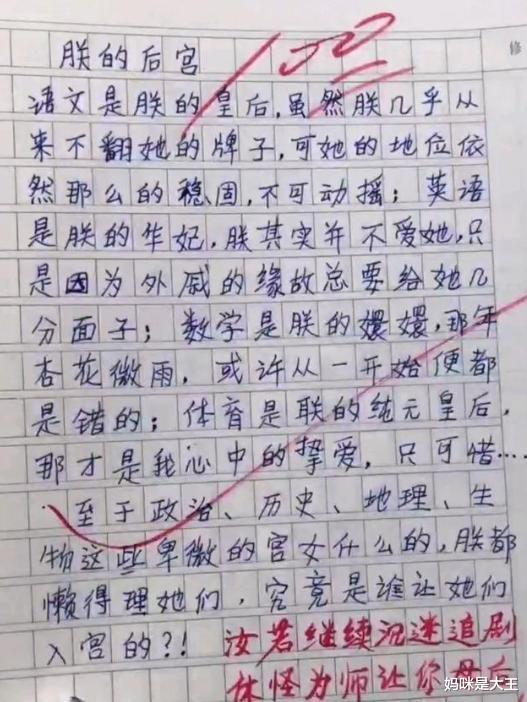 朕的后宫
100
修
语文是朕的皇后,虽然朕几乎从
来不翻她的牌子,可她的地位依
然那么的稳固,不可动摇;英语
是朕的华妃,朕其实并不爱她,只
是因为外戚的缘故总要给她几
分面子;数学是朕的嬛嬛,那年
杏花微雨,或许从一开始便都
是错的;体育是联的纯元皇后,
那才是我心中的挚爱,只可惜……
至于政治、历史、地理、生
物这些卑微的宫女什么的,朕都
懒得理她们,究竟是谁让她们
入宫的?!
汝若继续沉迷追剧
休怪为师让你母后
妈咪是大王